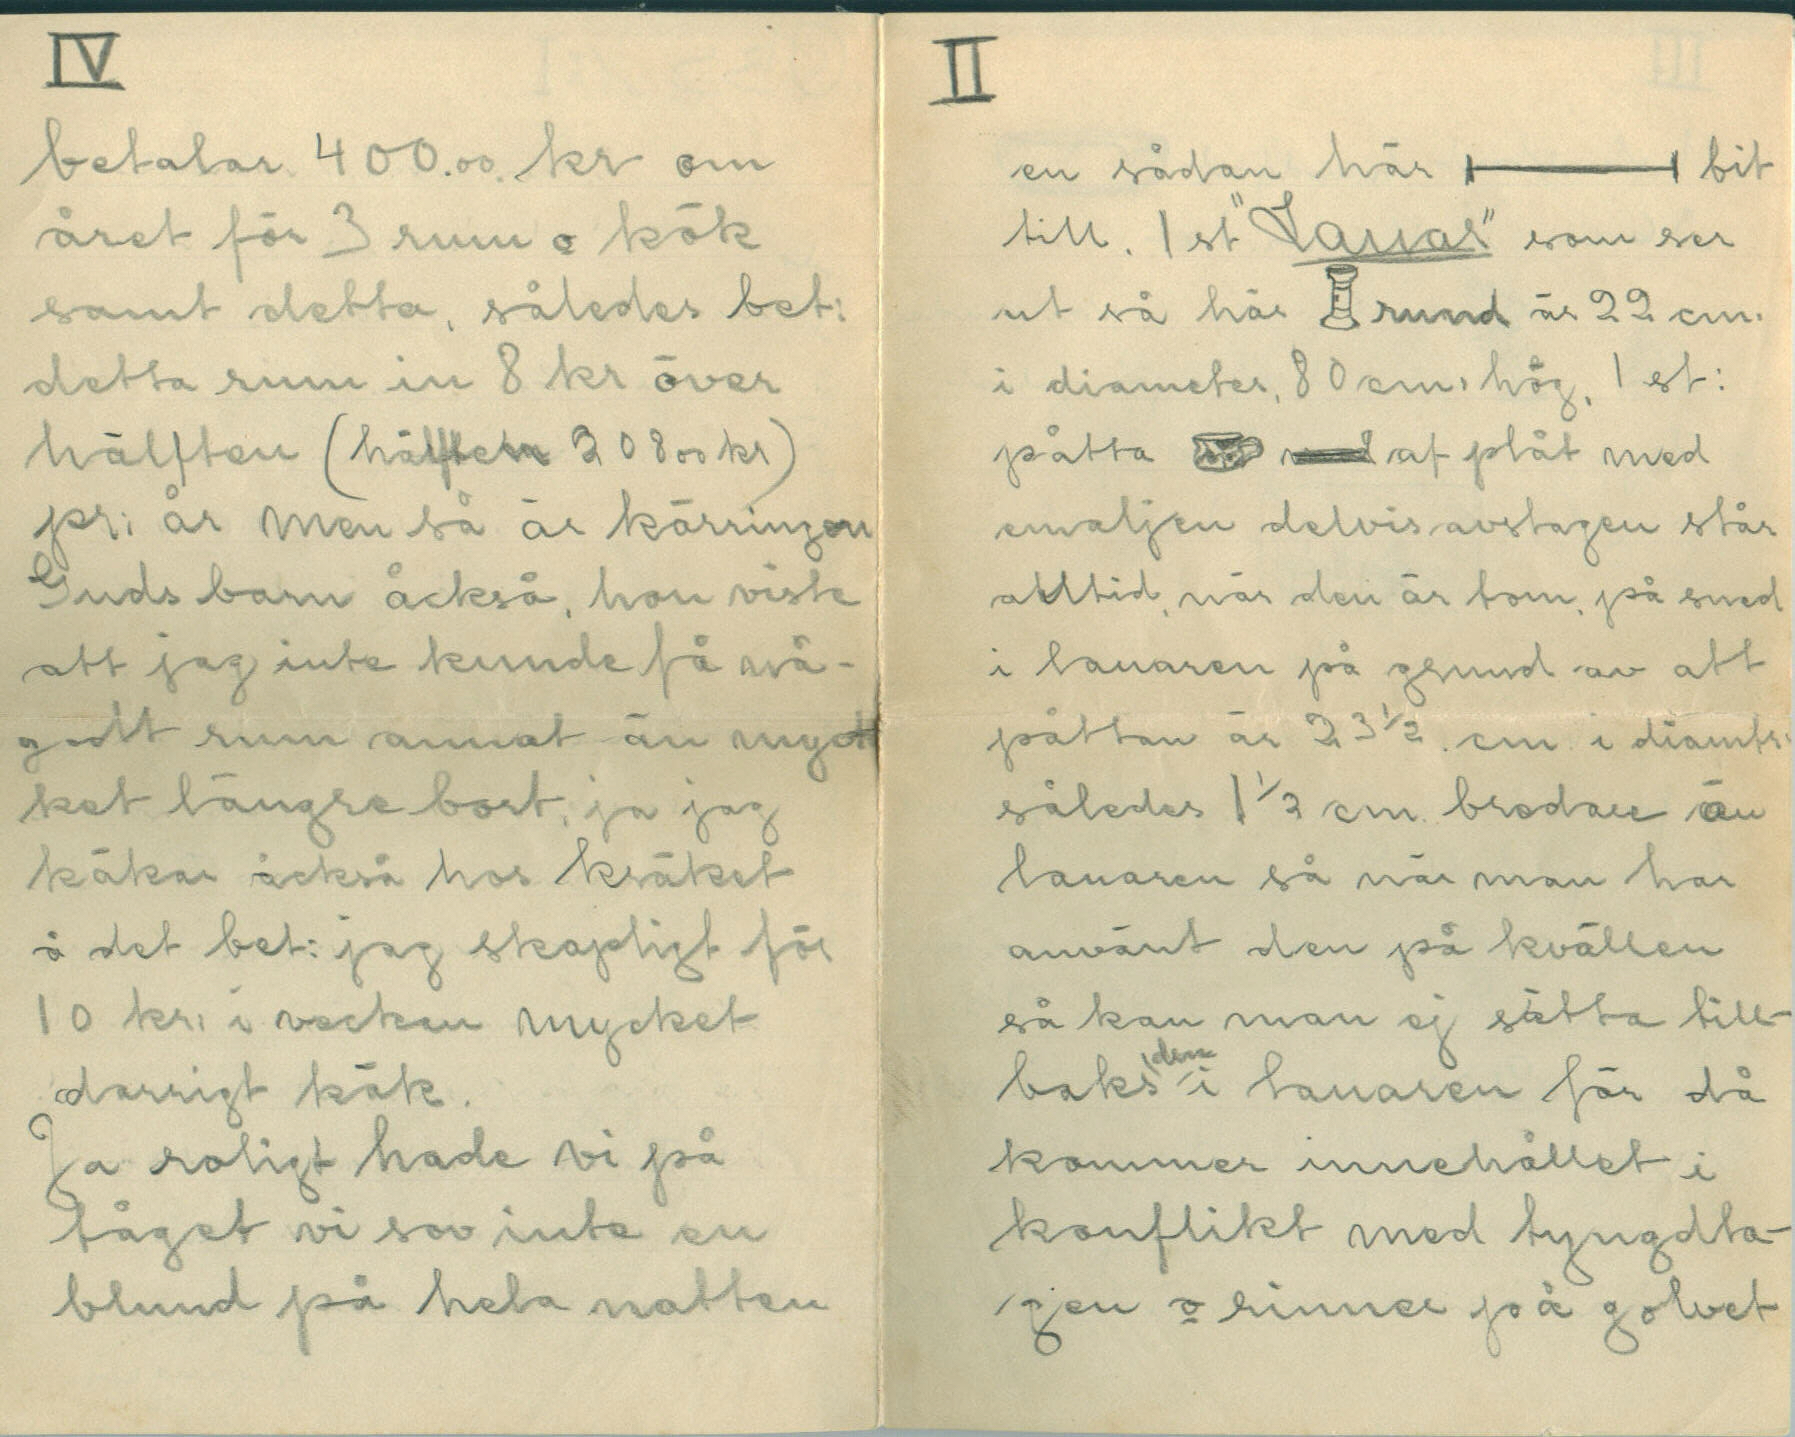 IV
betalar 400.00. kr om
året för 3 rum o kök
samt detta, således bet:
detta rum in 8 kr över
hälften (hälften 208 00 kr)
pr: år men så är kärringen
Guds barn åckså, hon viste
att jag inte kunde få nå-
godt rum annat än myc
ket längre bort, ja jag
käkar åckså hos kräket
å det bet: jag skapligt för
10 kr: i veckan mycket
darrigt käk.
Ja roligt hade vi på
tåget vi sov inte en
blund på hela natten
II
en sådan här bit
till. 1 st "Lauar" som ser
ut så här rund är 22 cm.
i diameter, 80 cm, hög, 1 st:
påtta af plåt med
emaljen delvis avstagen står
alltid, när den är tom, på sned
i lauaren på grund av att
påttan är 23 1/2. cm i diamtr:
således 1 1/2 cm. bredare än
lauaren så när man har
använt den på kvällen
så kan man ej sätta till-
baks den i lauaren för då
kommer innehållet i
konflikt med tyngdla-
gen o rinner på golvet